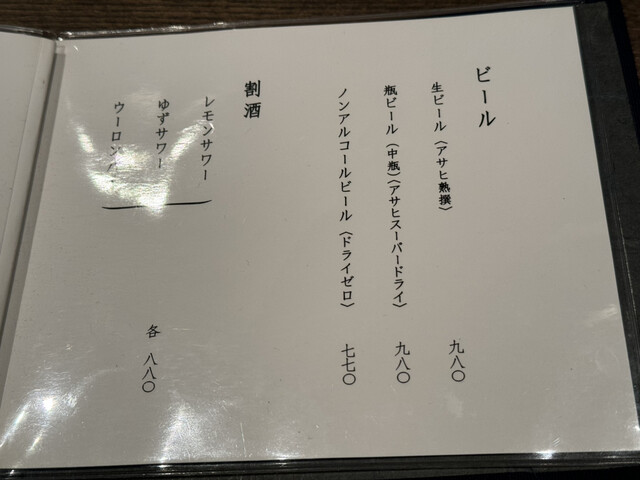 ビール
生ビール（アサヒ熟撰） 九八〇
瓶ビール（中瓶）（アサヒスーパードライ） 九八〇
ノンアルコールビール（ドライゼロ） 七七〇
割酒
レモンサワー
ゆずサワー
ウーロン
各 八八〇